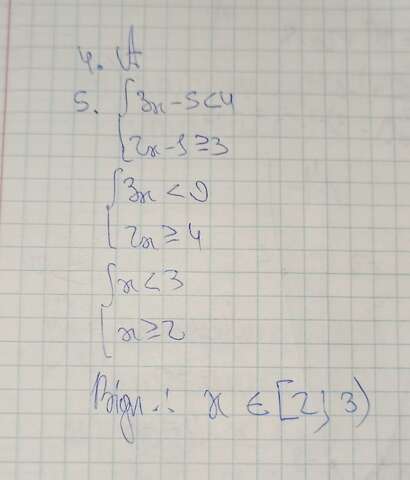 4. A
5. { 3x - 5 < 4
{ 2x - 1 ≥ 3
{ 3x < 9
{ 2x ≥ 4
{ x < 3
{ x ≥ 2
Відп.: x ∈ [2; 3)